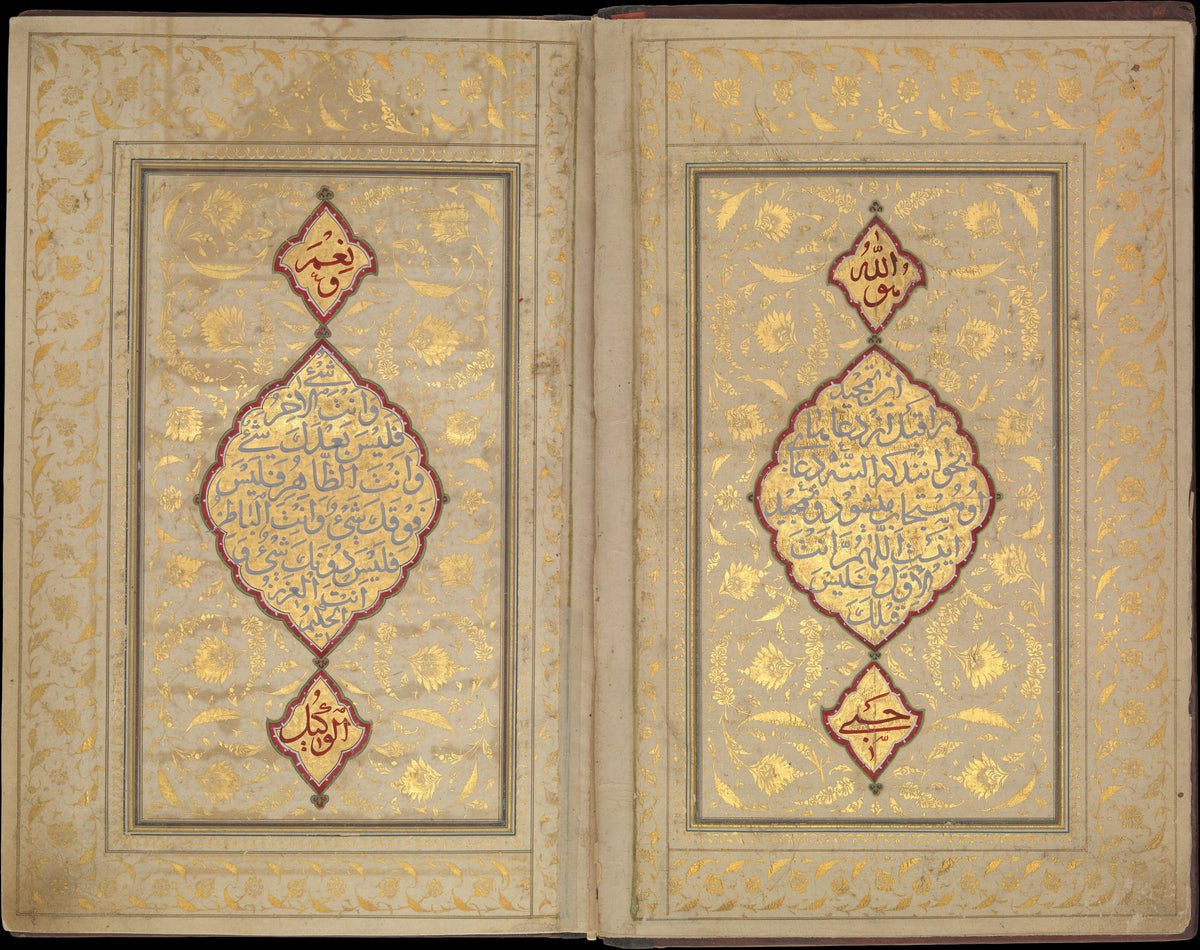 هو الله
این تمجید
را قبل از دعاها
بخوانند که البته دعای
او مستجاب میشود و تمجید
اینست اللهم انت
الاول فلیس
قبلک
حسبی
ونعم
شیء
وانت الآخر
فلیس بعدک شیء
وانت الظاهر فلیس
فوقک شیء وانت الباطن
فلیس دونک شیء و
انت العزیز
الوکیل